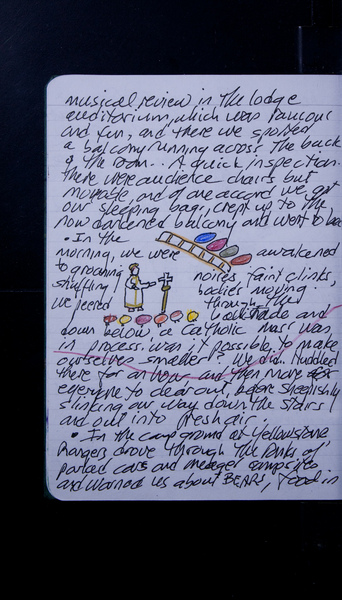 musical review in the lodge
auditorium, which was raucous
and fun, and there we spotted
a balcony running across the back
of the room.. A quick inspection.
there were audience chairs but
moveable, and of one accord we got
our sleeping bags, crept up to the
now darkened balcony and went to bed
• In the
morning, we were awakened
to groaning noises, faint clinks,
shuffling bodies moving.
we peered through the
balustrade and
down below, a Catholic Mass was
in process. was it possible to make
ourselves smaller? We huddled
there for an hour and then more for
everyone to clear out, before sheepishly
slinking our way down the stairs
and out into fresh air.
• In the camp ground at Yellowstone
Rangers drove through the ranks of
parked cars and meager campsites
and warned us about BEARS, food in